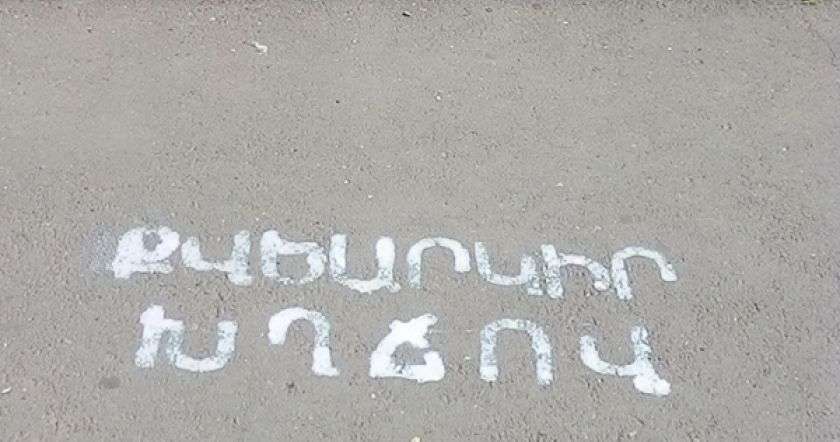 ՔՎԵԱՐԿԻՐ
ԽՂՃՈՎ